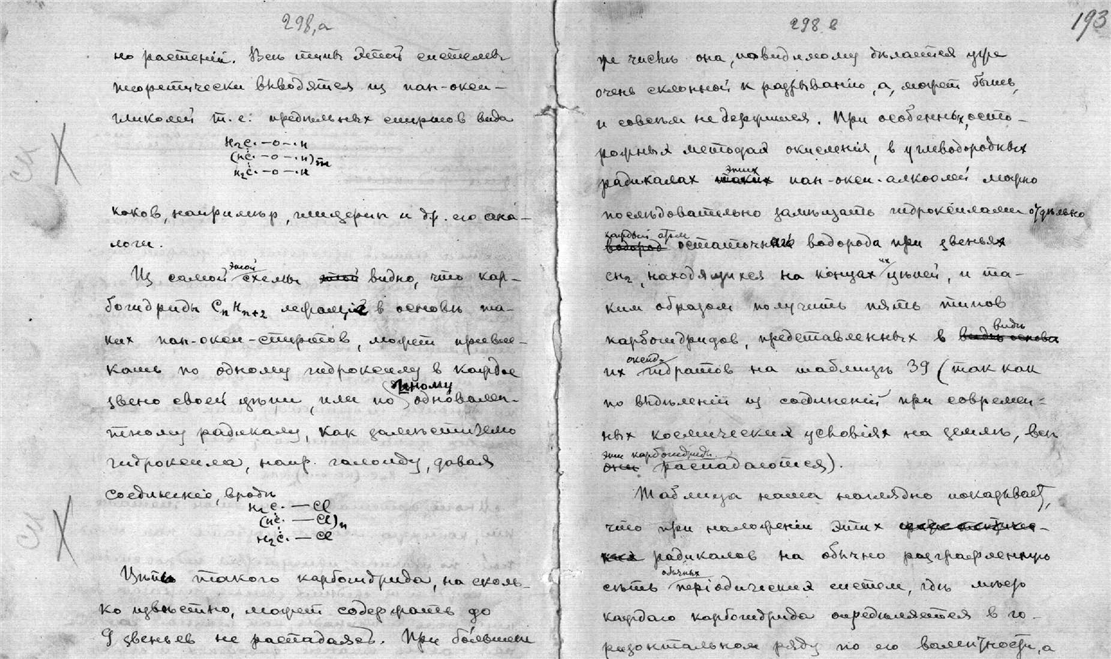 298,а
но растеній. Весь типъ этой системы
теоретически выводятся из пан-окси-
гликолей т. е. предѣльных спиртов вида
H₂C. — O — H
(HC. — O — H)m
H₂C. — O — H
каков, напримѣр, глицерин и др. его ана-
логи.
Из самой этой схемы видно, что кар-
богидриды CnHn+2 лежащіе в основѣ та-
ких пан-окси-спиртов, может привле-
кать по одному гидроксилу в каждое
звено своей цѣпи или по иному одновален-
тному радикалу, как замѣстителю
гидроксила, напр. галоиду, давая
соединеніе, вродѣ
H₂C. — Cl
(HC. — Cl)n
H₂C. — Cl
Цѣпь такого карбогидрида, на сколь-
ко извѣстно, может содержать до
9 звеньев не распадаясь. При большем
298 в
193
же числѣ она, повидимому дѣлается уже
очень склонной к разрыванію, а, может быть,
и совсѣм недержущейся. При особенных, осто-
рожных методах окисленія, в углеводородных
радикалах этих пан-окси-алкоолей можно
послѣдовательно замѣщать гидроксилами отдѣльно
каждый атом остаточнаго водорода при звеньях
CH₂, находящихся на концах их цѣпей, и та-
ким образом получить пять типов
карбогидридов, представленных в видѣ
их оксидо гидратов на таблицѣ 39 (так как
по выдѣленіи из соединеній при современ-
ных космических условіях на землѣ, всѣ
эти карбогидриды распадаются).
Таблица наша наглядно показывает,
что при наложеніи этих
радикалов на обычно разграфленную
сѣть обычных періодических систем, гдѣ мѣсто
каждаго карбогидрида опредѣляется в го-
ризонтальном ряду по его валентности, а